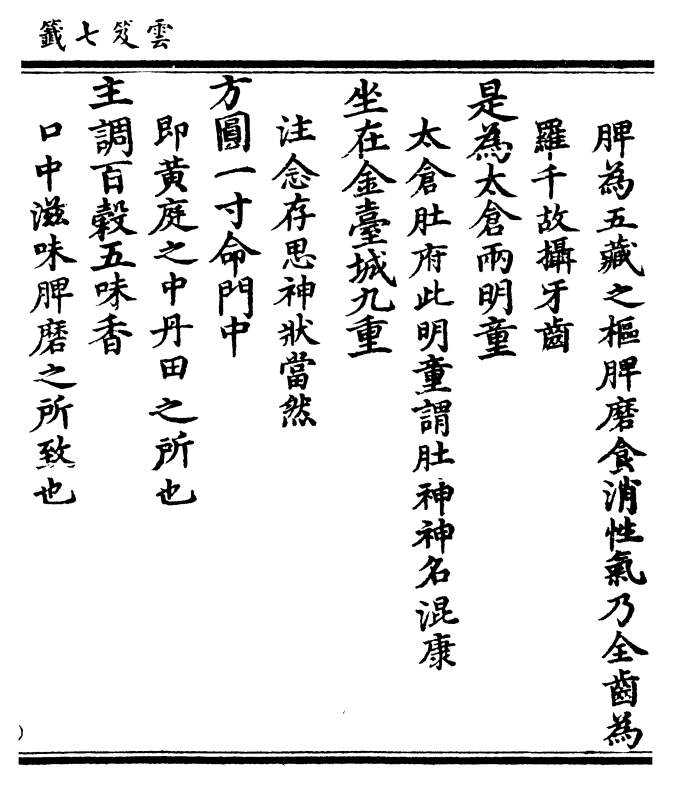 雲笈七籤
脾為五藏之樞脾磨食消性氣乃全齒為
羅千故攝牙齒
是為太倉兩明童
太倉肚府此明童謂肚神神名混康
坐在金臺城九重
注念存思神狀當然
方圓一寸命門中
即黃庭之中丹田之所也
主調百穀五味香
口中滋味脾磨之所致也